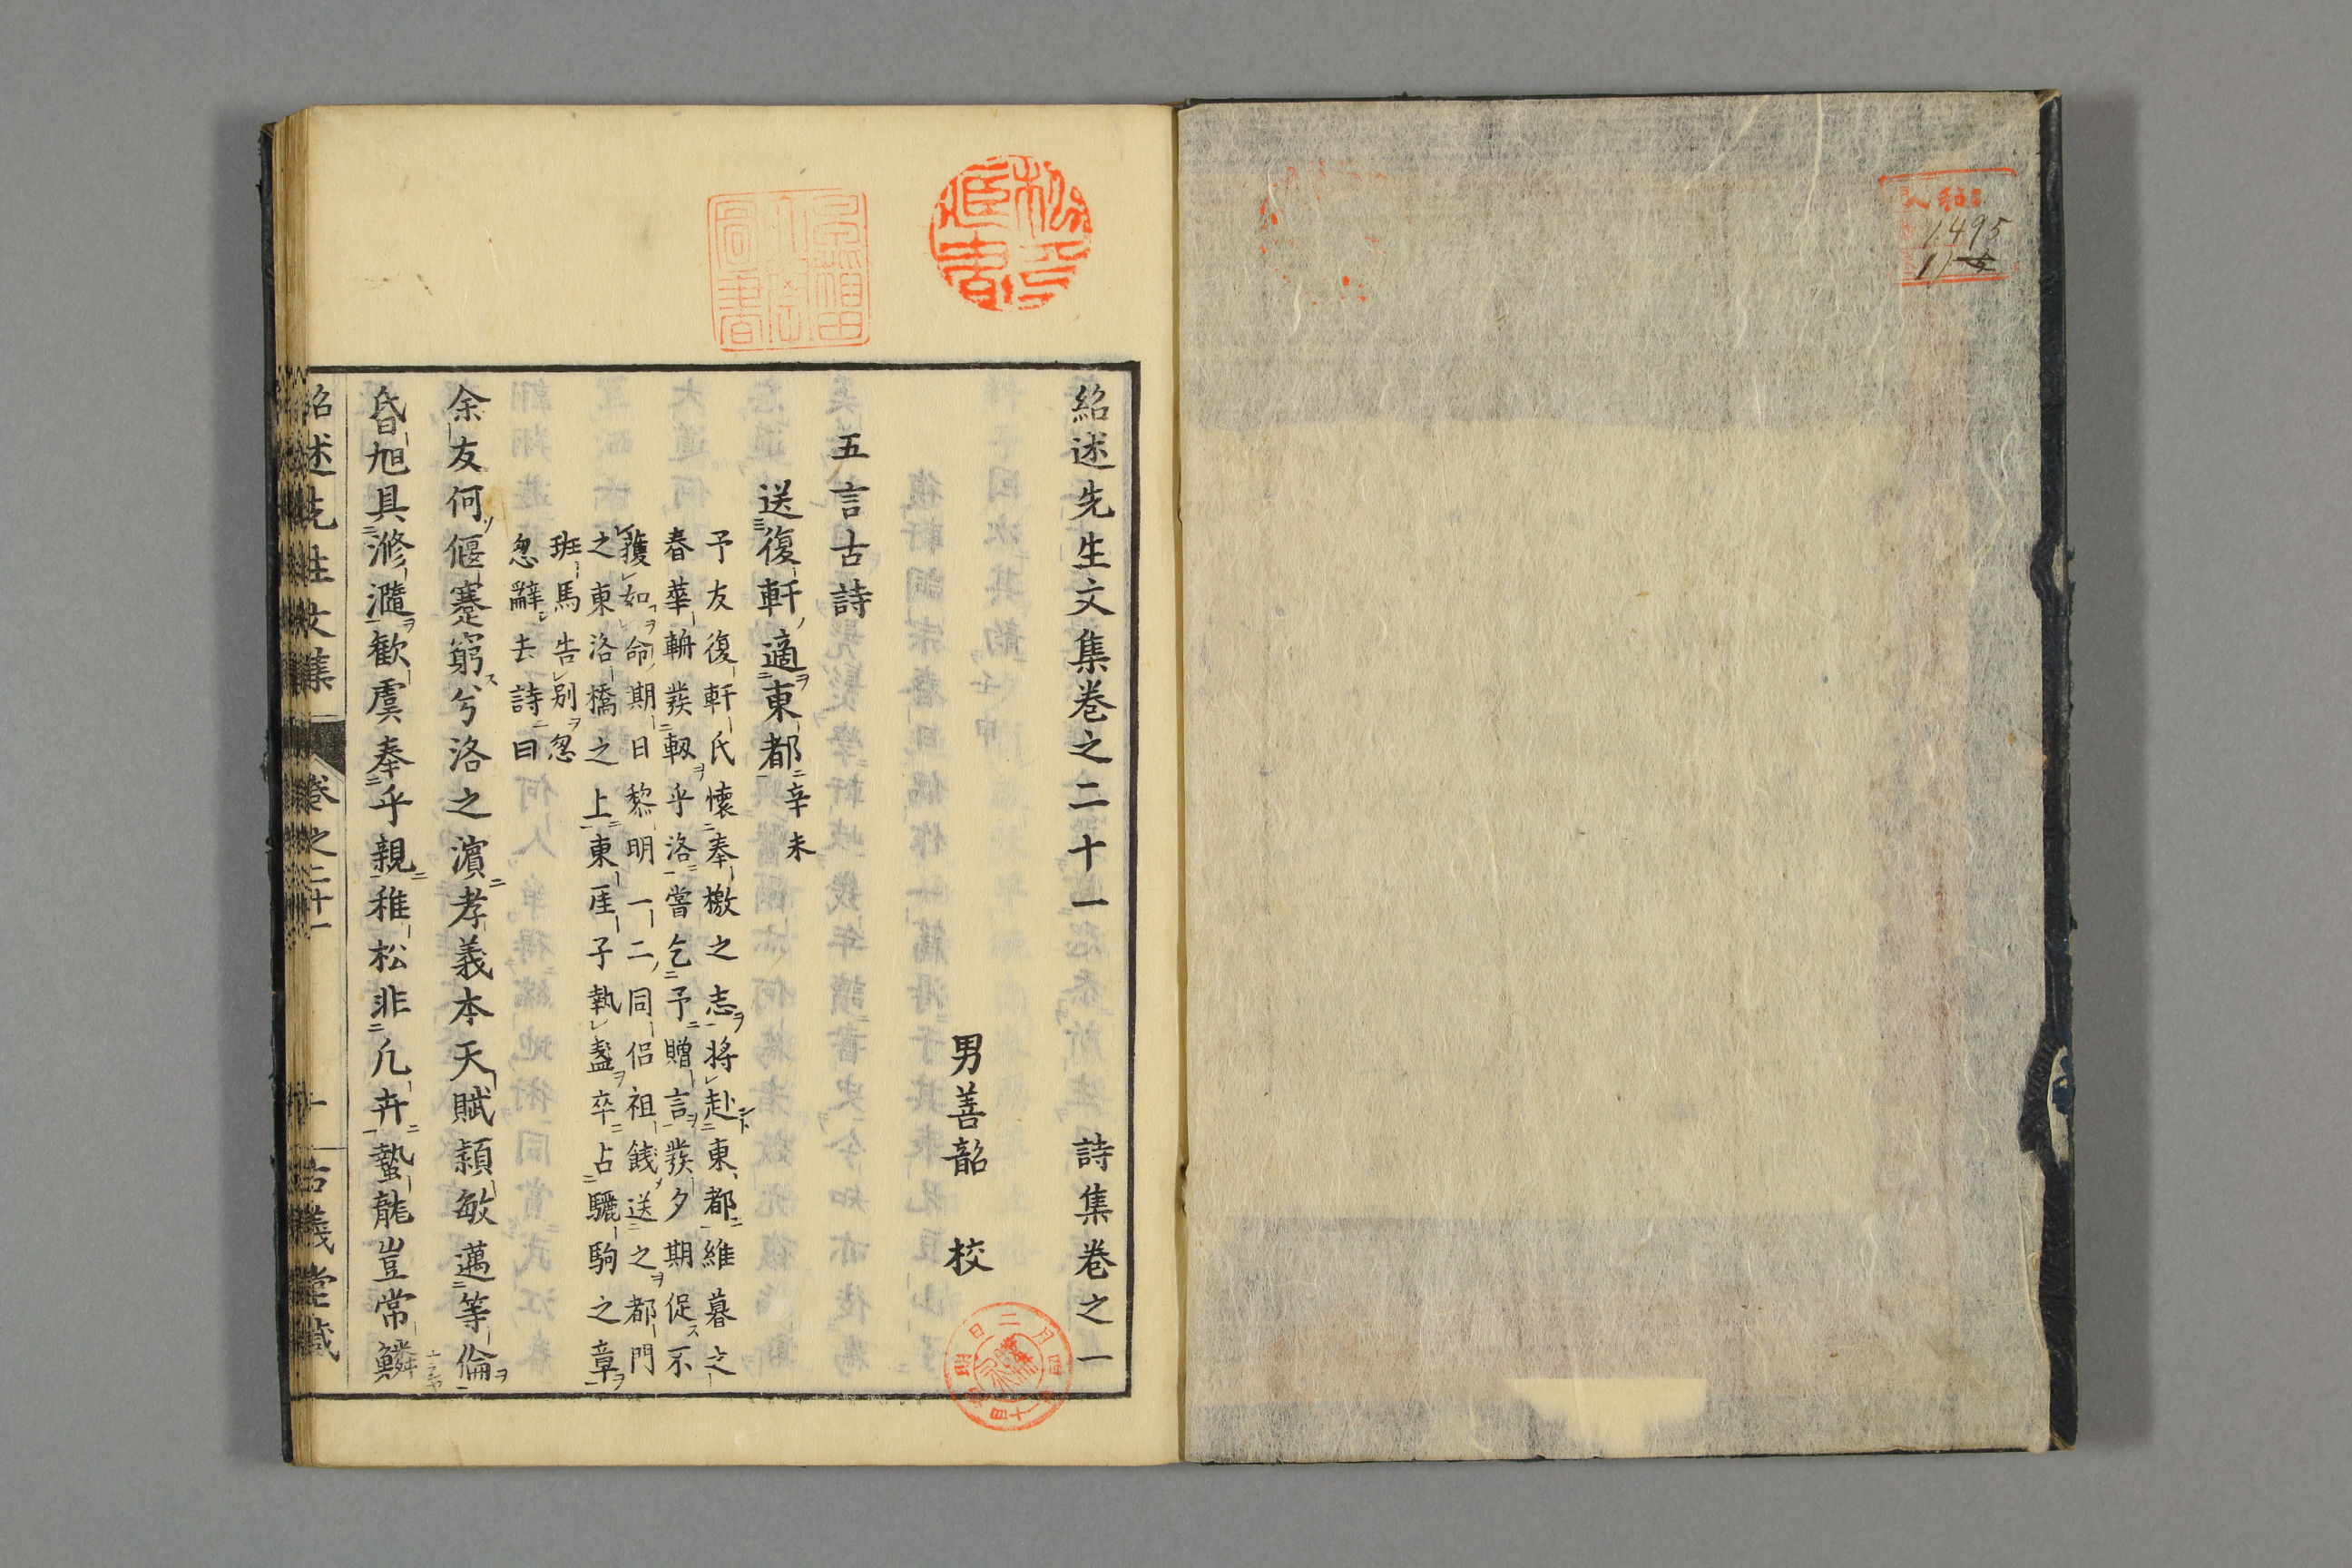 1495
紹述先生文集卷之二十一 詩集卷之一
男善韶 校
五言古詩
送復軒適東都 辛未
予友復軒氏懷奉檄之志將赴東都維暮之
春華輈發軔乎洛嘗乞予贈言發夕期促不
獲如命期日黎明一二同侶祖餞送之都門
之東洛橋之上東厓子執盞卒占驪駒之章
班馬告別忽
忽辭去詩曰
余友何偃蹇窮兮洛之濱孝義本天賦穎敏邁等倫
昏旭具滫瀡歡虞奉乎親稚松非凡卉蟄龍豈常鱗
紹述先生文集 卷之二十一 一 古義堂藏